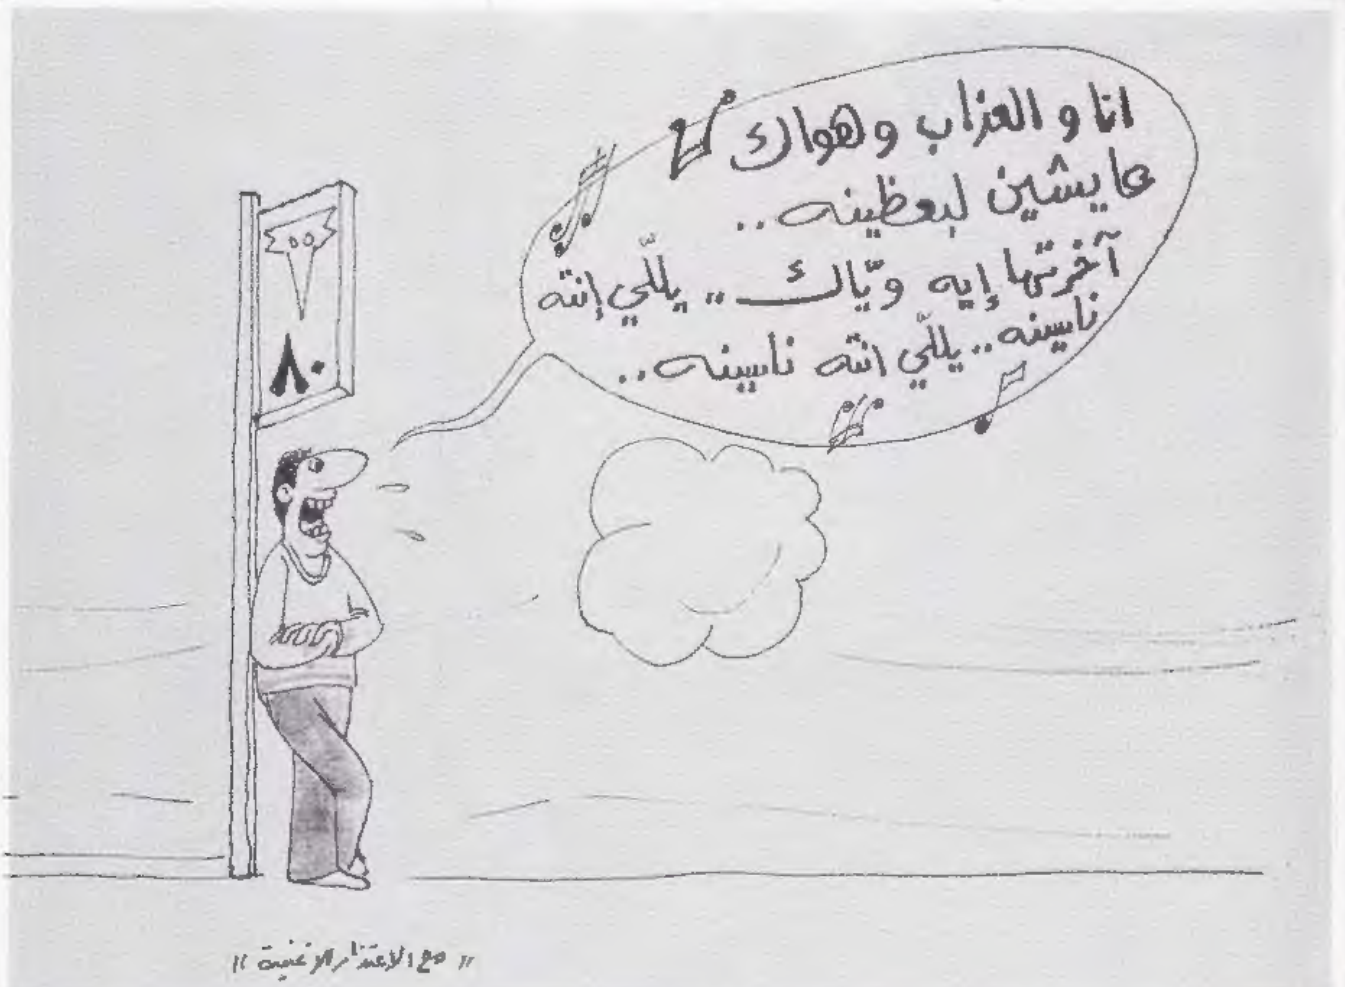 انا و العزاب وهواك
عايشين لبعظينه ..
آخرتها إيه ويّاك .. يللّي إنته
ناسينه .. يللّي انته ناسينه ..
٨٠
" مع الاعتذار للأغنية "